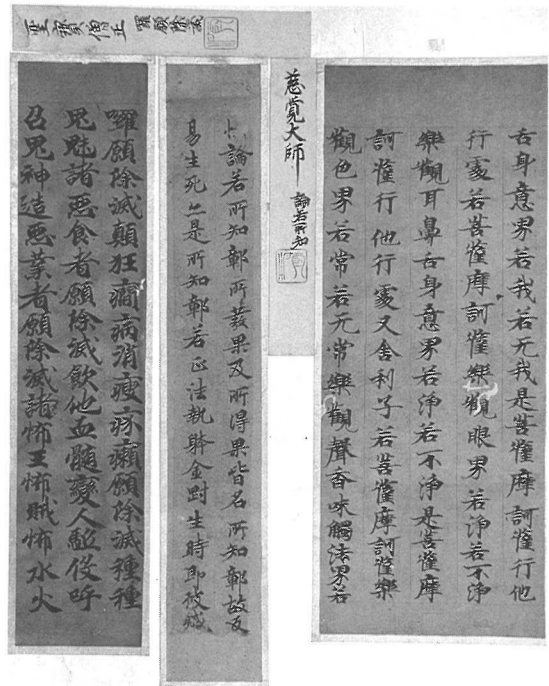 舌身意界若我若无我是菩薩摩訶薩行他
行處若菩薩摩訶薩樂觀眼界若淨若不淨
樂觀耳鼻舌身意界若淨若不淨是菩薩摩
訶薩行他行處又舍利子若菩薩摩訶薩樂
觀色界若常若无常樂觀聲香味觸法界若
慈覚大師
論若所知
論若所知鄣所果及所得果皆名所知鄣故
易生死是所知鄣若正法執金生時即彼滅
寳僧正
囉願除滅
囉願除滅顛狂病消瘦疥癩願除滅種種
鬼魅諸惡食者願除滅飲他血髓變人駈役呼
召鬼神造惡業者願除滅諸怖王怖賊怖水火